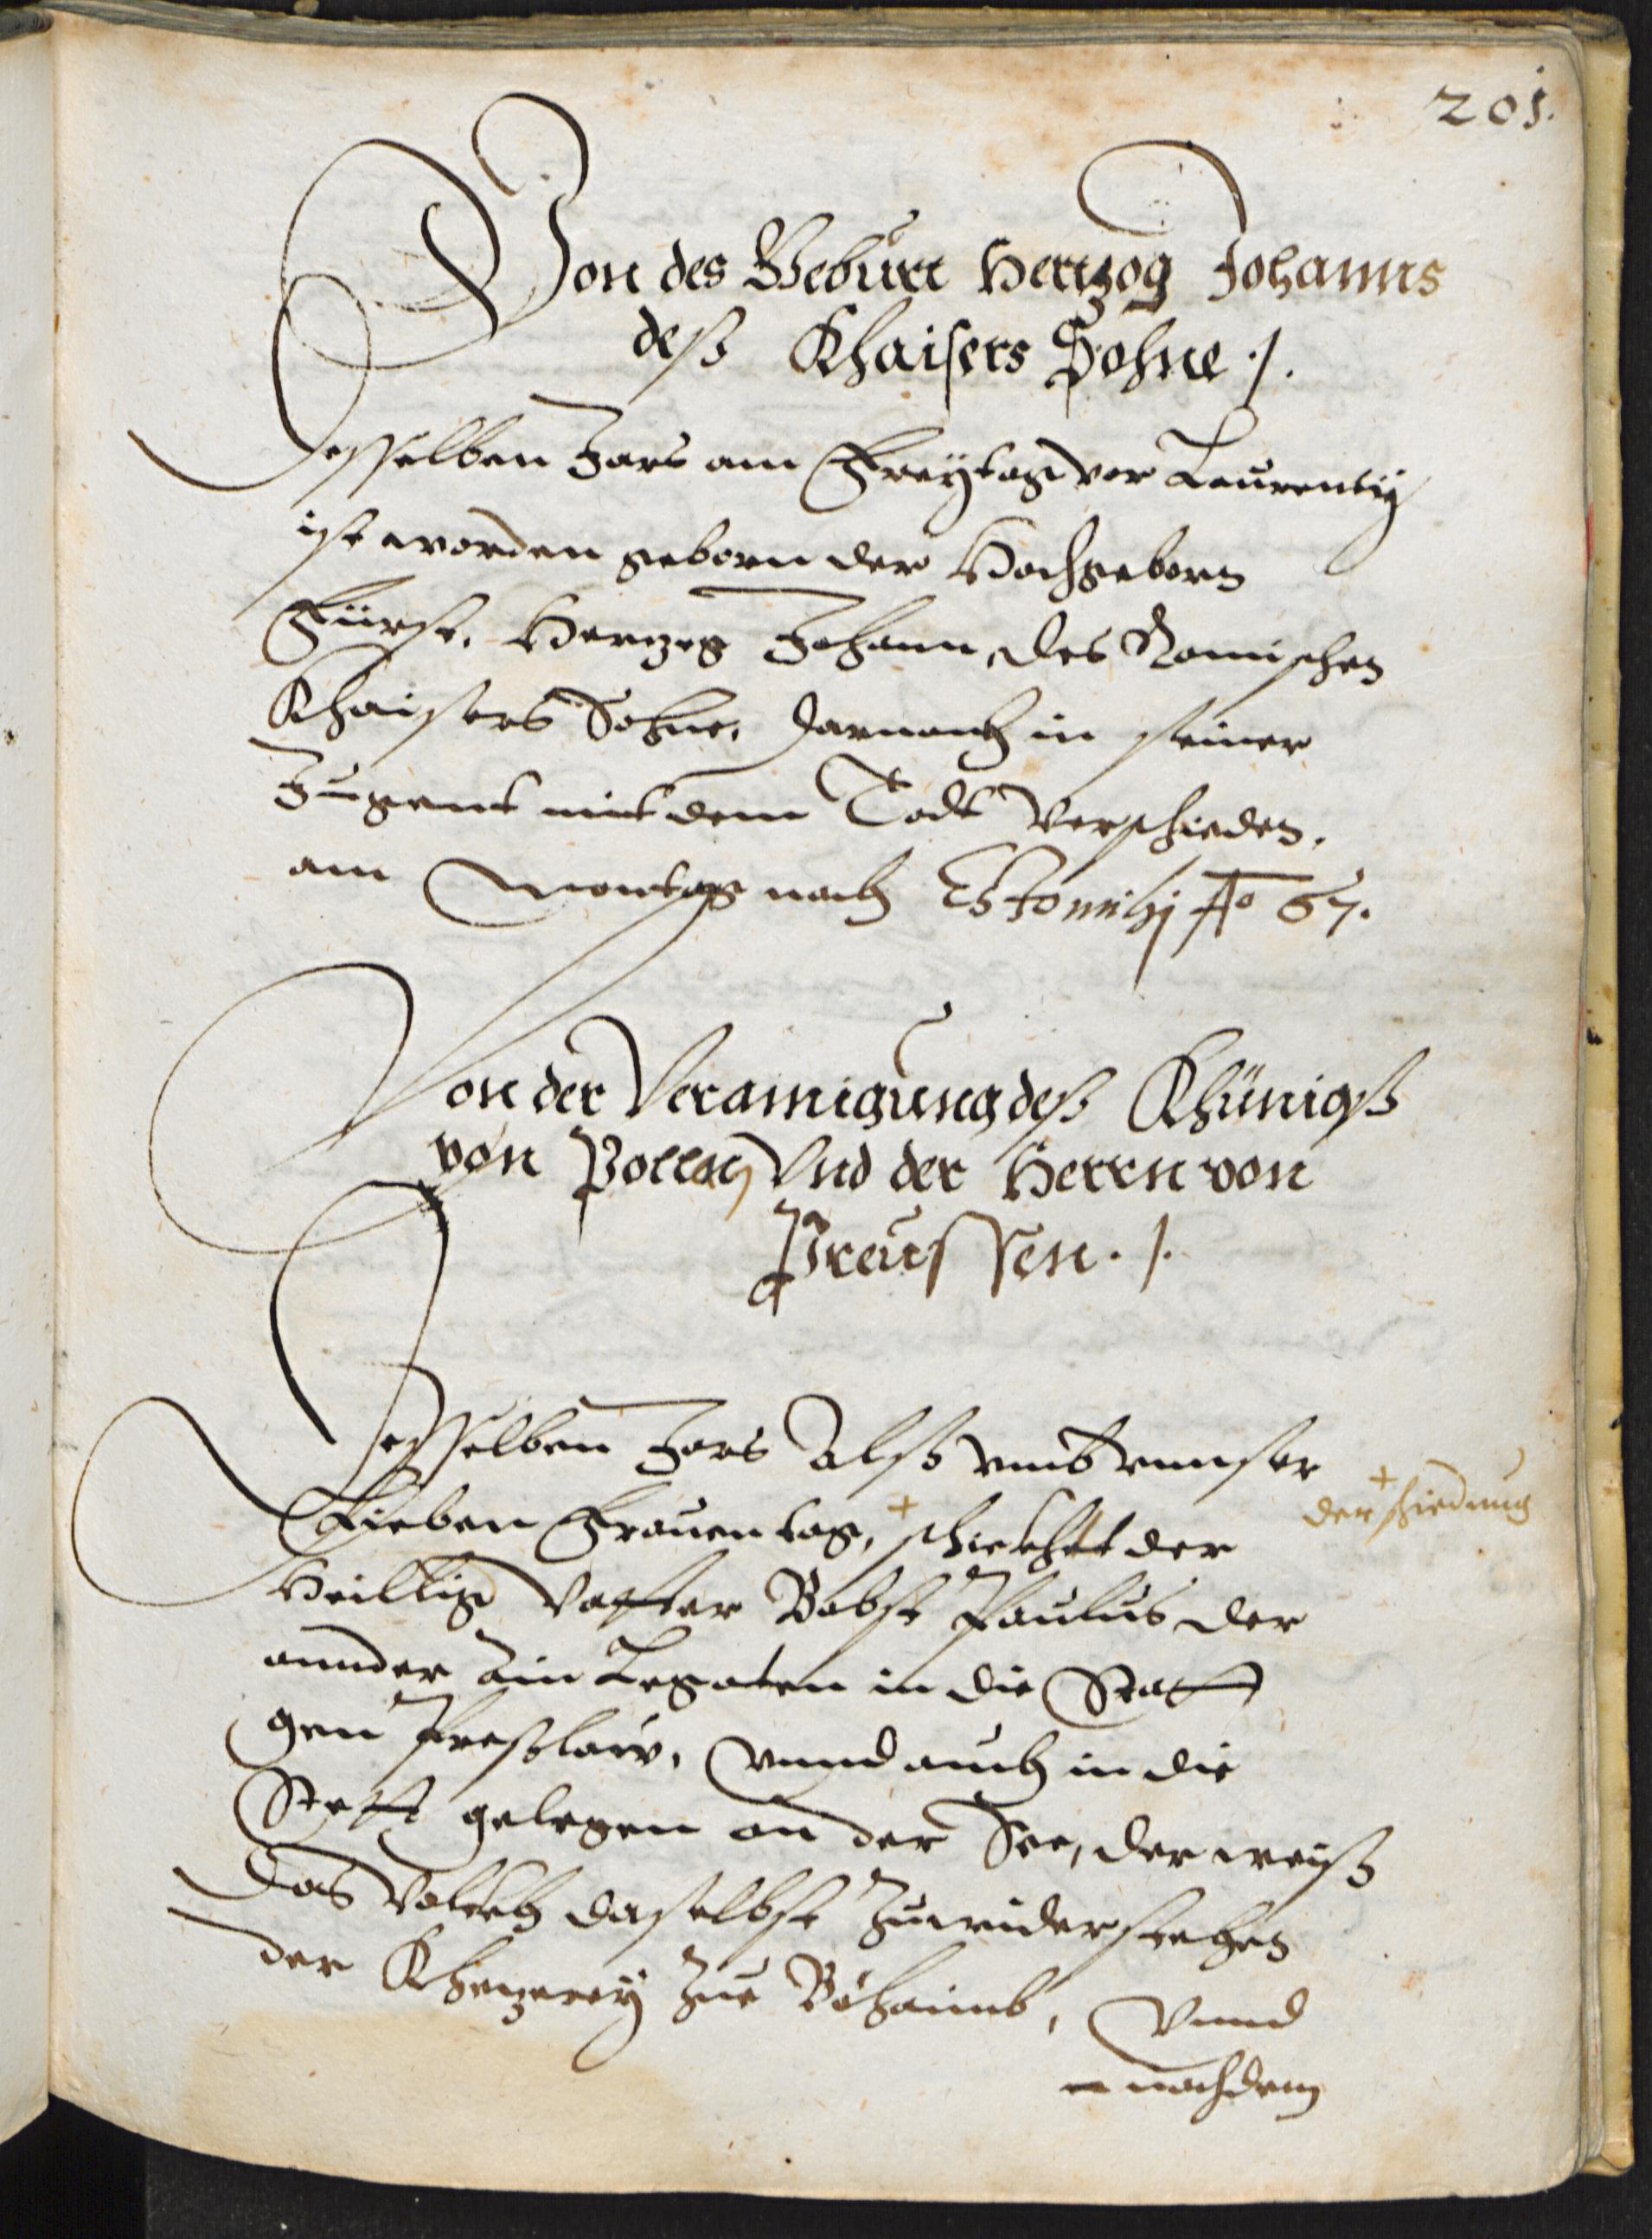 201.
Von des Geburt Hertzog Johanns
deß Khaisers Sohne ./.
Desselben Jars am Freÿtag vor Laurentÿ
ist worden geborn der Hochgeborn
Fürst, Hertzog Johann, des Romischen
Khaisers Sohne, darnach in seiner
Jugent mit dem Todt verschieden,
am Montag nach Estomihj Ao 67.
Von der Verainigung deß Khünigß
von Pollen Vnd der Herrn von
Preussen ./.
Desselben Jars Alß vmb vnnser
Lieben Frauen tag, + schickhtt der
+ der schiedung
Heillig Vatter Babst Paulus der
annder Ain Legaten in die Statt
gen Presslaw, vnnd auch in die
Stett gelegen an der See, der weiß
Das Volckh daselbst Zuwiderstehen
der Khetzereÿ Zue Böhaimb, Vnnd
nachdem